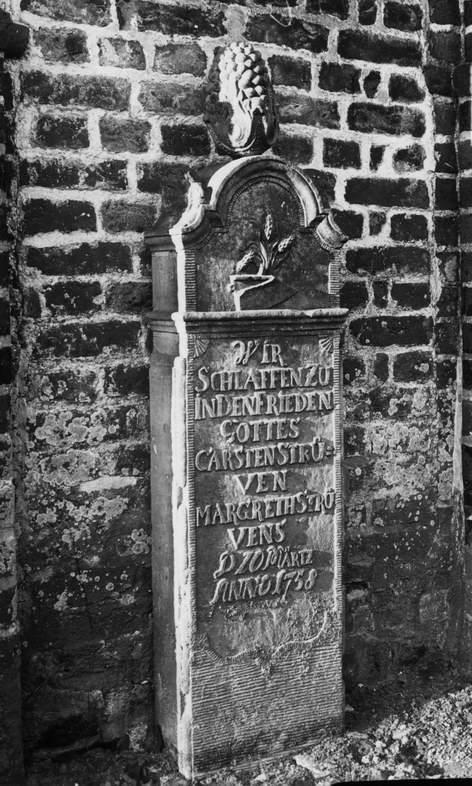 WIR
SCHLAFFEN ZU
IN DEN FRIEDEN
GOTTES
CARSTEN STRÜ-
VEN
MARGRETH STRÜ
VENS
D 20 MÄRTZ
ANNO 1758